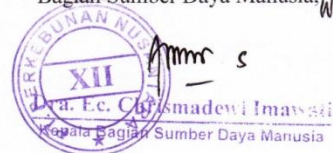 Bagian Sumber Daya Manusia,
PERKEBUNAN NUSANTARA
XII
Dra. Ec. Chrismadewi Imawati
Kepala Bagian Sumber Daya Manusia